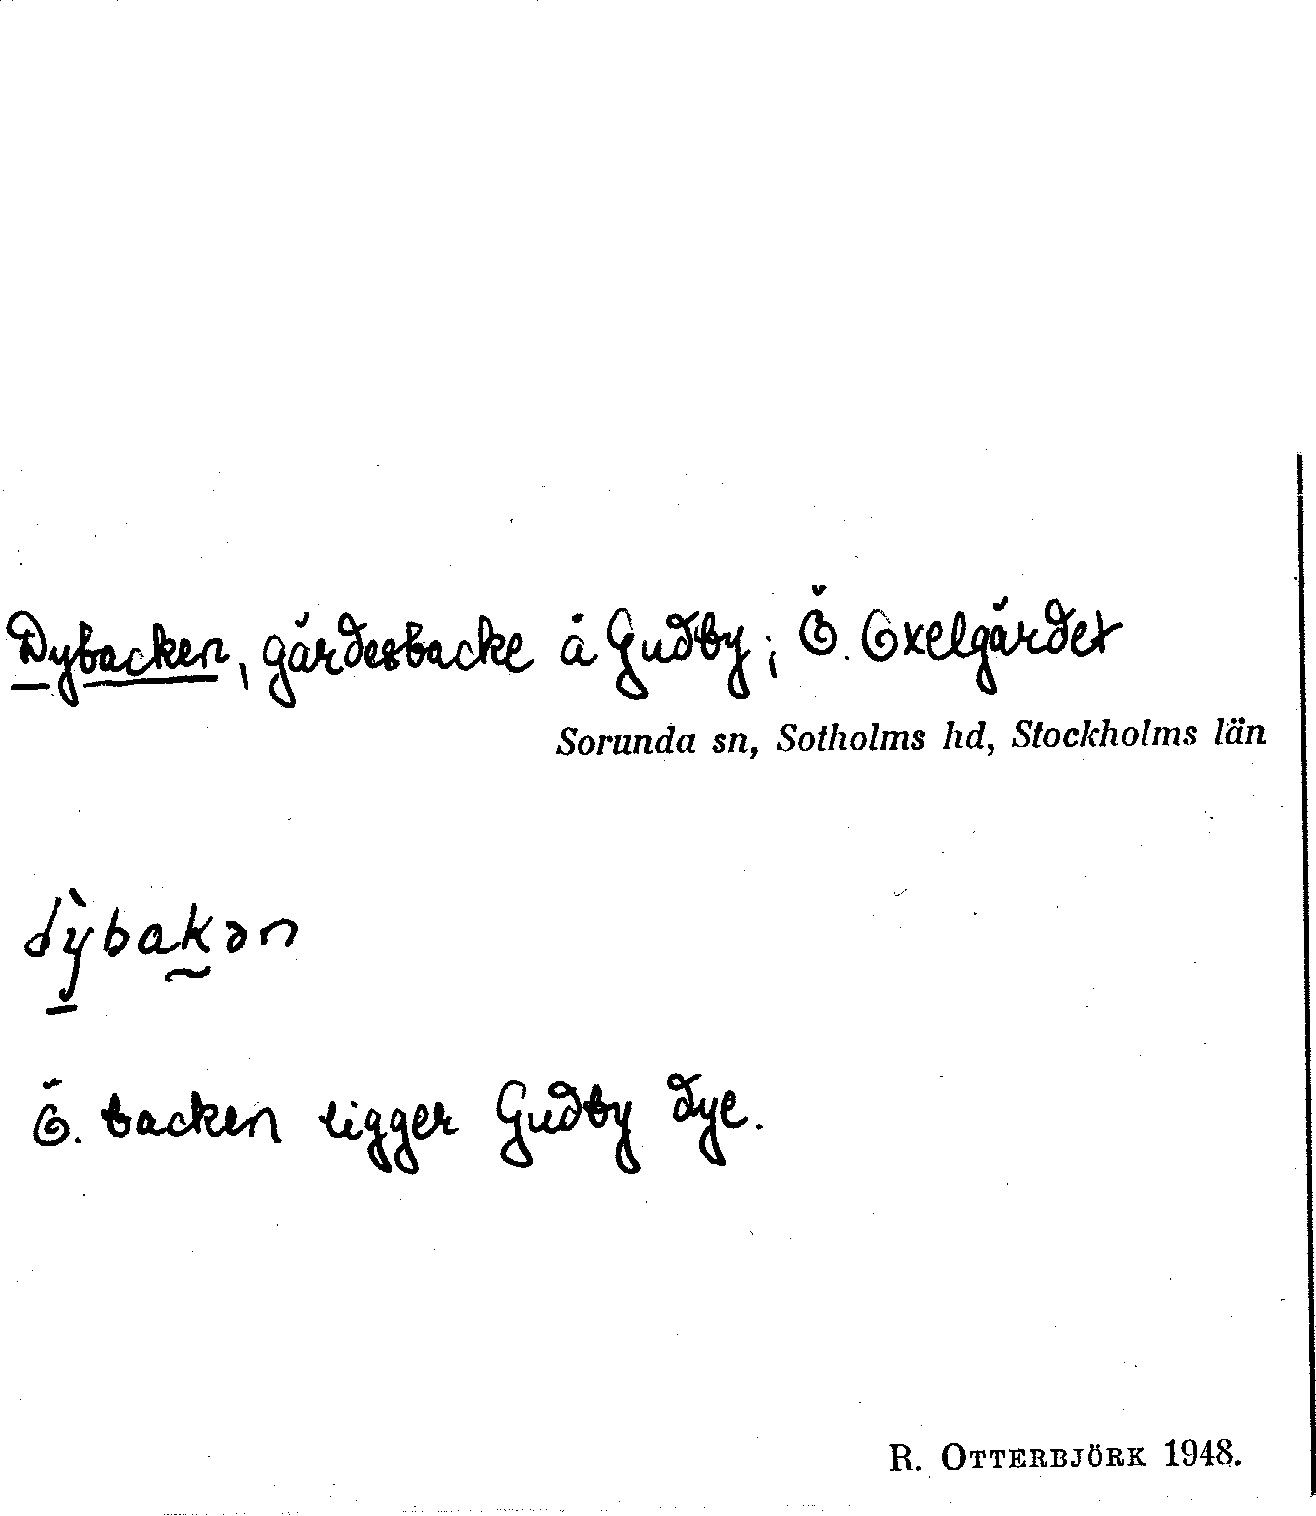 Dybacken, gärdesbacke å Gudby; Ö. Oxelgärdet
Sorunda sn, Sotholms hd, Stockholms län
dỳbakən
Ö. backen ligger Gudby dye.
R. OTTERBJÖRK 1948.